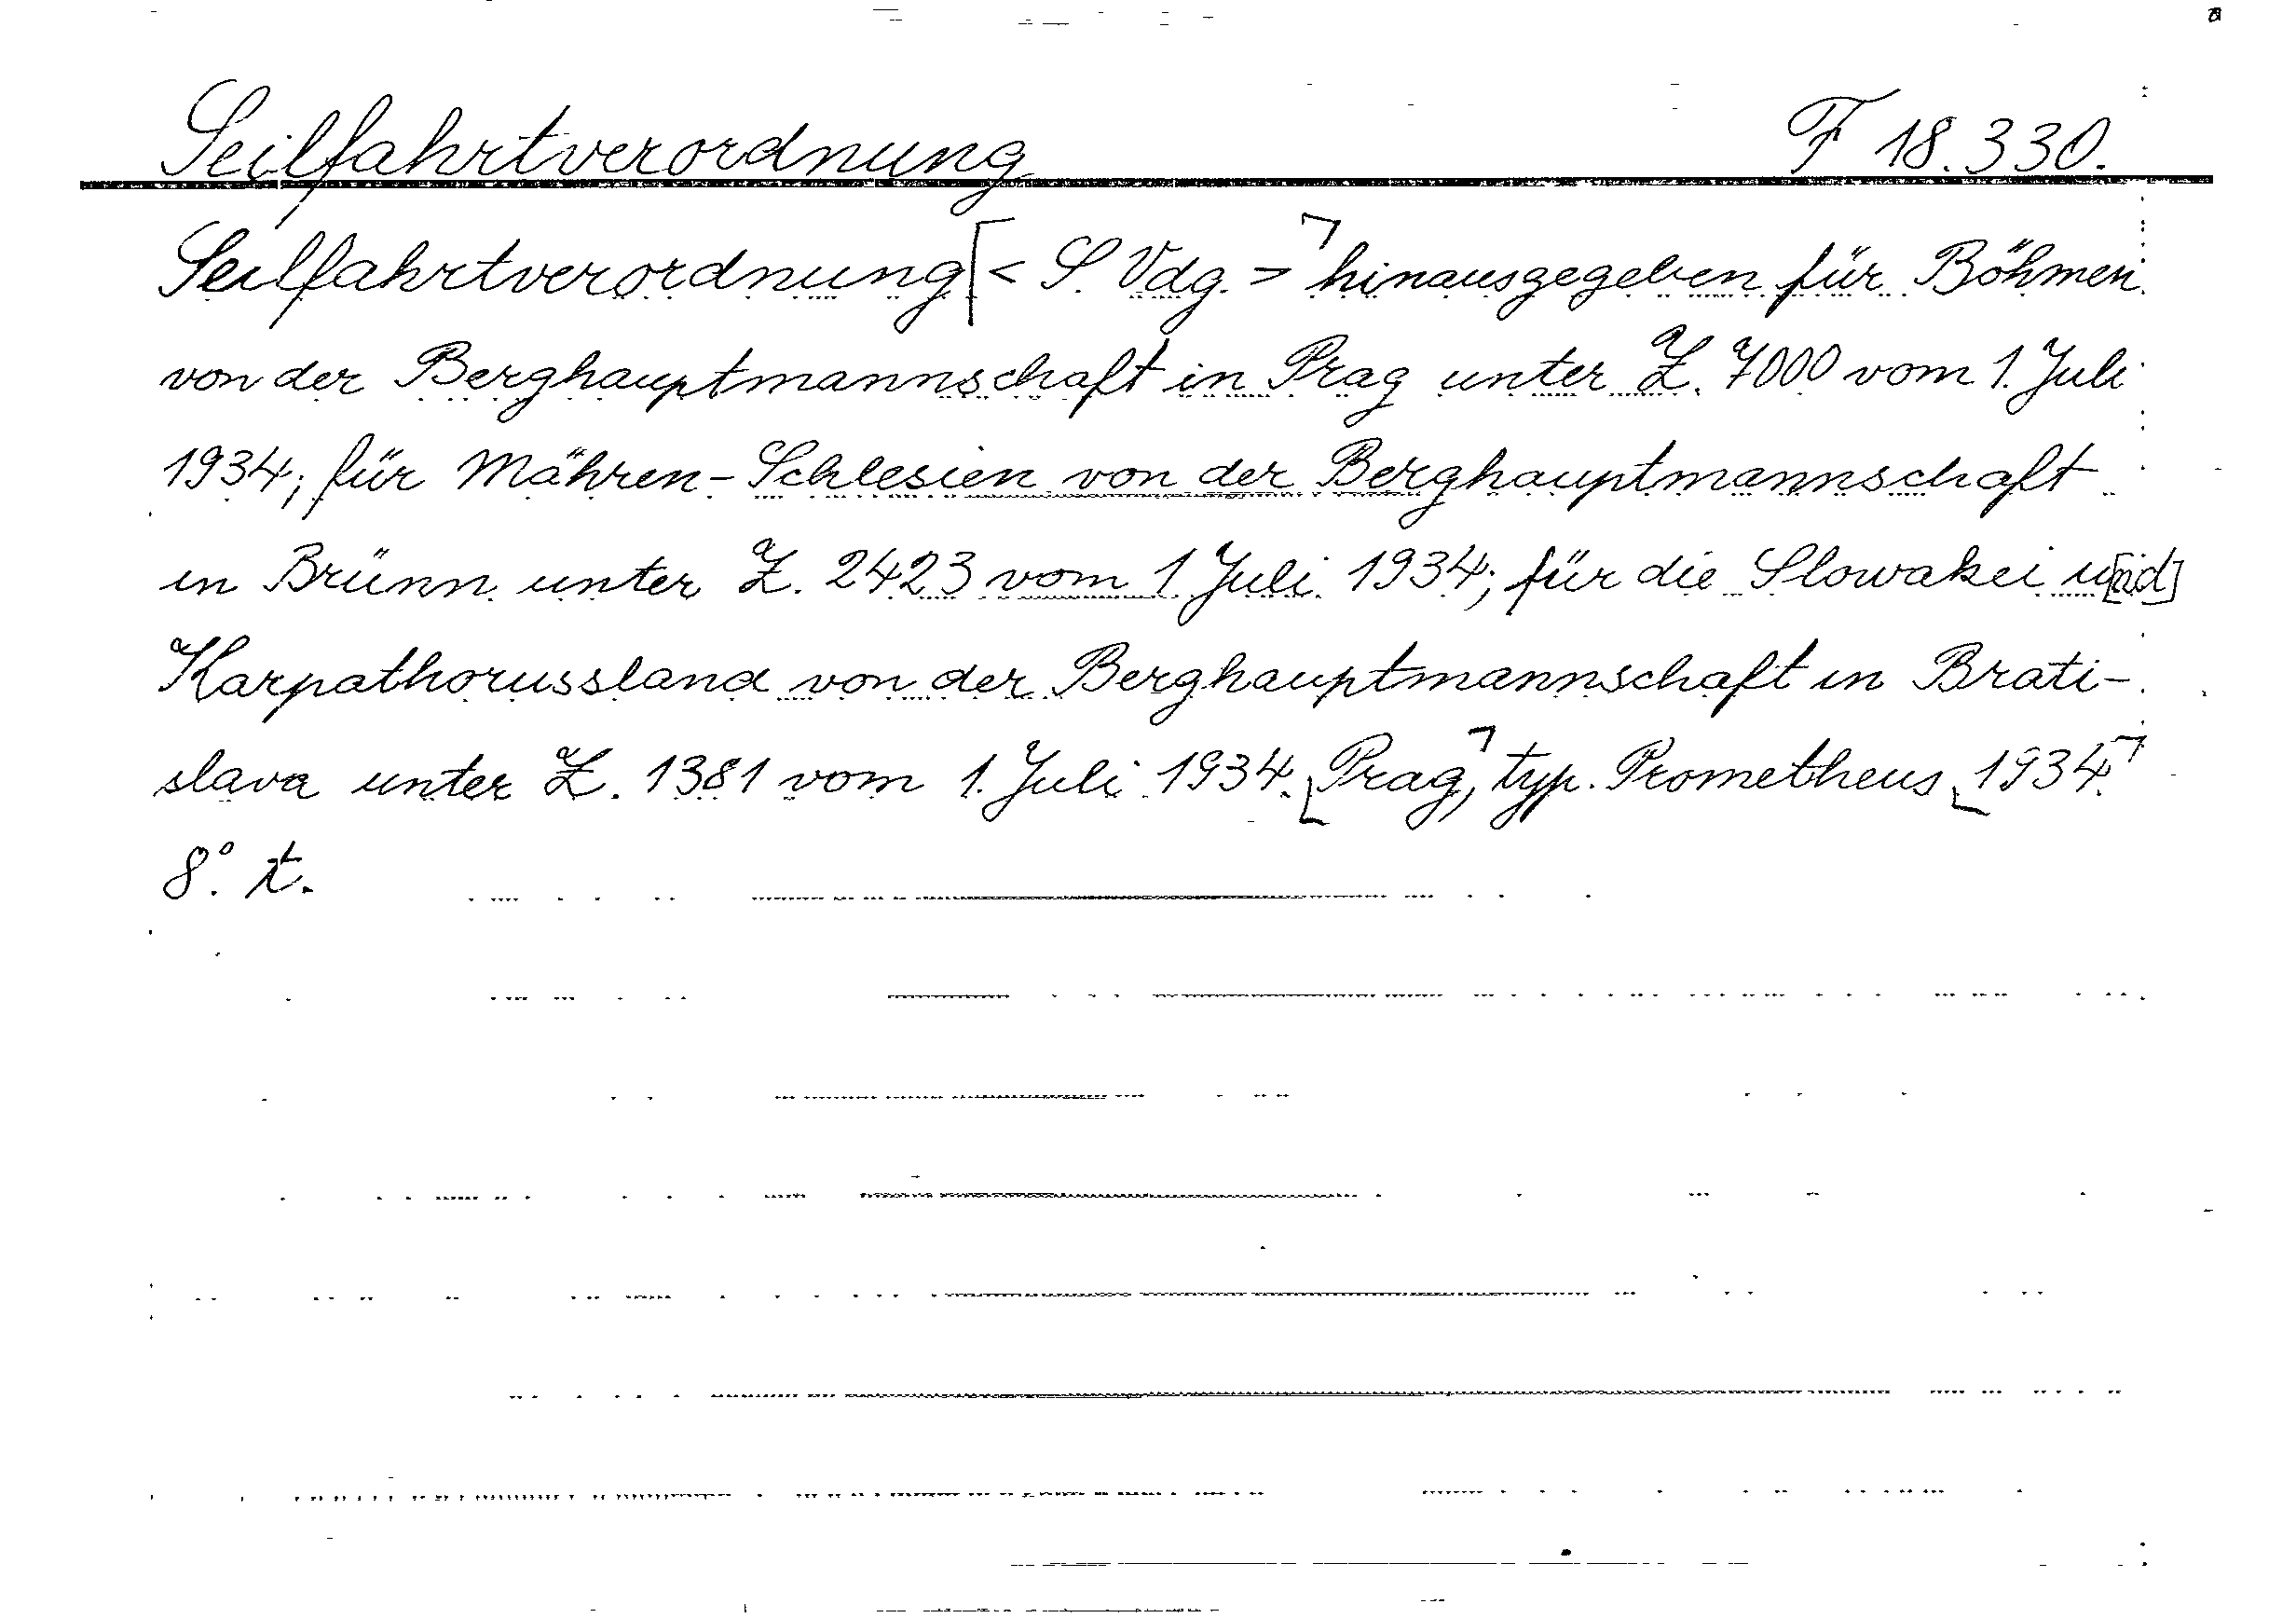 Seilfahrtverordnung F 18.330.
Seilfahrtverordnung [< S. Vdg. >] hinausgegeben für Böhmen
von der Berghauptmannschaft in Prag unter Z. 7000 vom 1. Juli
1934; für Mähren-Schlesien von der Berghauptmannschaft
in Brünn unter Z. 2423 vom 1 Juli 1934; für die Slowakei u[nd]
Karpathorussland von der Berghauptmannschaft in Brati-
slava unter Z. 1381 vom 1. Juli 1934. [Prag], typ. Prometheus [1934.]
8°. t.